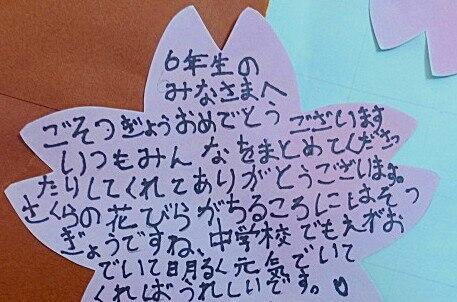 6年生の
みなさまへ
ごそつぎょうおめでとうございます
いつもみんなをまとめてくださっ
たりしてくれてありがとうございます。
さくらの花びらがちるころにはそつ
ぎょうですね、中学校でもえがお
でいて明るく元気でいて
くればうれしいです。